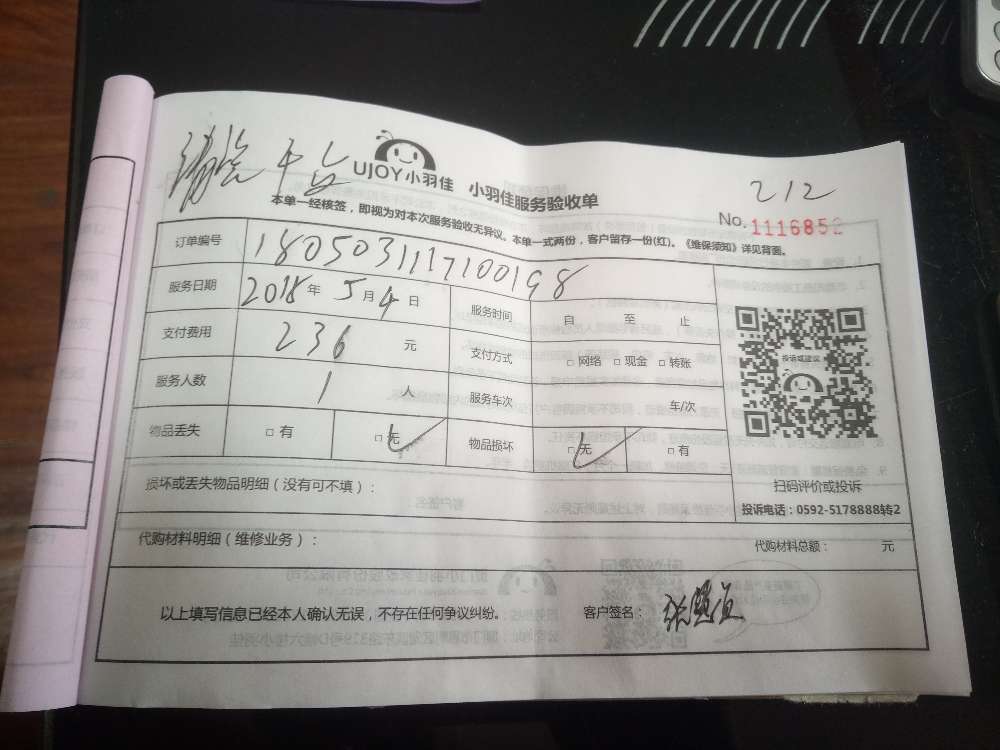 UJOY小羽佳 小羽佳服务验收单
212
No. 1116852
本单一经核签，即视为对本次服务验收无异议。本单一式两份，客户留存一份(红)。《维保须知》详见背面。
订单编号 1805031117100198
服务日期 2018年 5月4日 服务时间 自 至 止
支付费用 236 元 支付方式 □网络 □现金 □转账
服务人数 1 人 服务车次 车/次
物品丢失 □有 □无 物品损坏 □无 □有
投诉或建议
扫码评价或投诉
投诉电话：0592-5178888转2
损坏或丢失物品明细（没有可不填）：
代购材料明细（维修业务）： 代购材料总额： 元
以上填写信息已经本人确认无误，不存在任何争议纠纷。 客户签名：